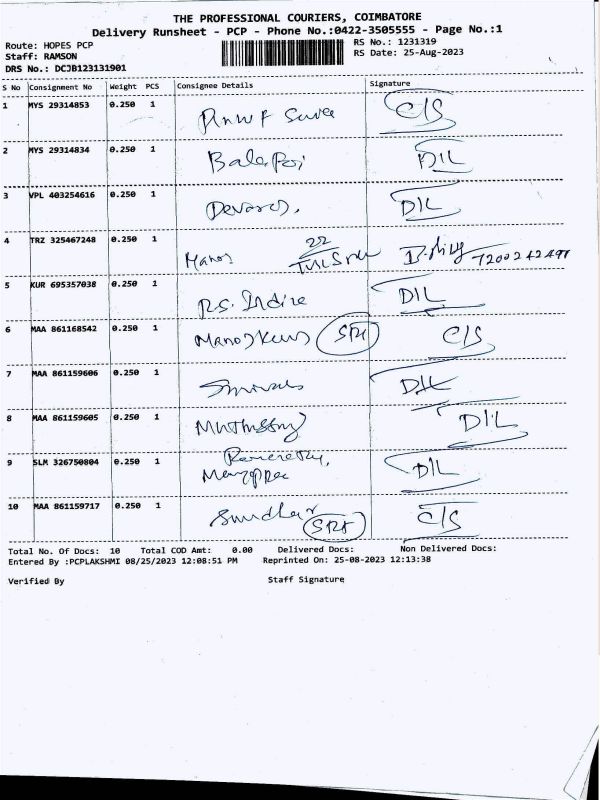 THE PROFESSIONAL COURIERS, COIMBATORE
Delivery Runsheet - PCP - Phone No.:0422-3505555 - Page No.:1
Route: HOPES PCP
Staff: RAMSON
DRS No.: DCJB123131901
RS No.: 1231319
RS Date: 25-Aug-2023
S No Consignment No Weight PCS Consignee Details Signature
1 MYS 29314853 0.250 1 C/S
2 MYS 29314834 0.250 1 D/L
3 VPL 403254616 0.250 1 Devaraj, D/L
4 TRZ 325467248 0.250 1 Manoj 22
5 KUR 695357038 0.250 1 R.S. Indira D/L
6 MAA 861168542 0.250 1 C/S
7 MAA 861159606 0.250 1 D/L
8 MAA 861159605 0.250 1 D/L
9 SLM 326750804 0.250 1 D/L
10 MAA 861159717 0.250 1 C/S
Total No. Of Docs: 10 Total COD Amt: 0.00 Delivered Docs: Non Delivered Docs:
Entered By :PCPLAKSHMI 08/25/2023 12:08:51 PM Reprinted On: 25-08-2023 12:13:38
Verified By Staff Signature